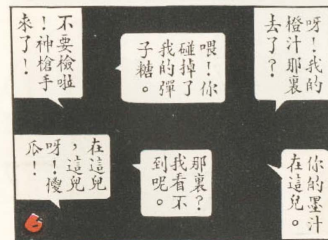 呀！我的
橙汁那裏
去了？
喂！你
碰掉了
我的彈
子糖。
不要檢啦
！神槍手
來了！
你的墨汁
在這兒。
那裏？
我看不
到呢。
在這兒
，這兒
呀！傻
瓜！
6